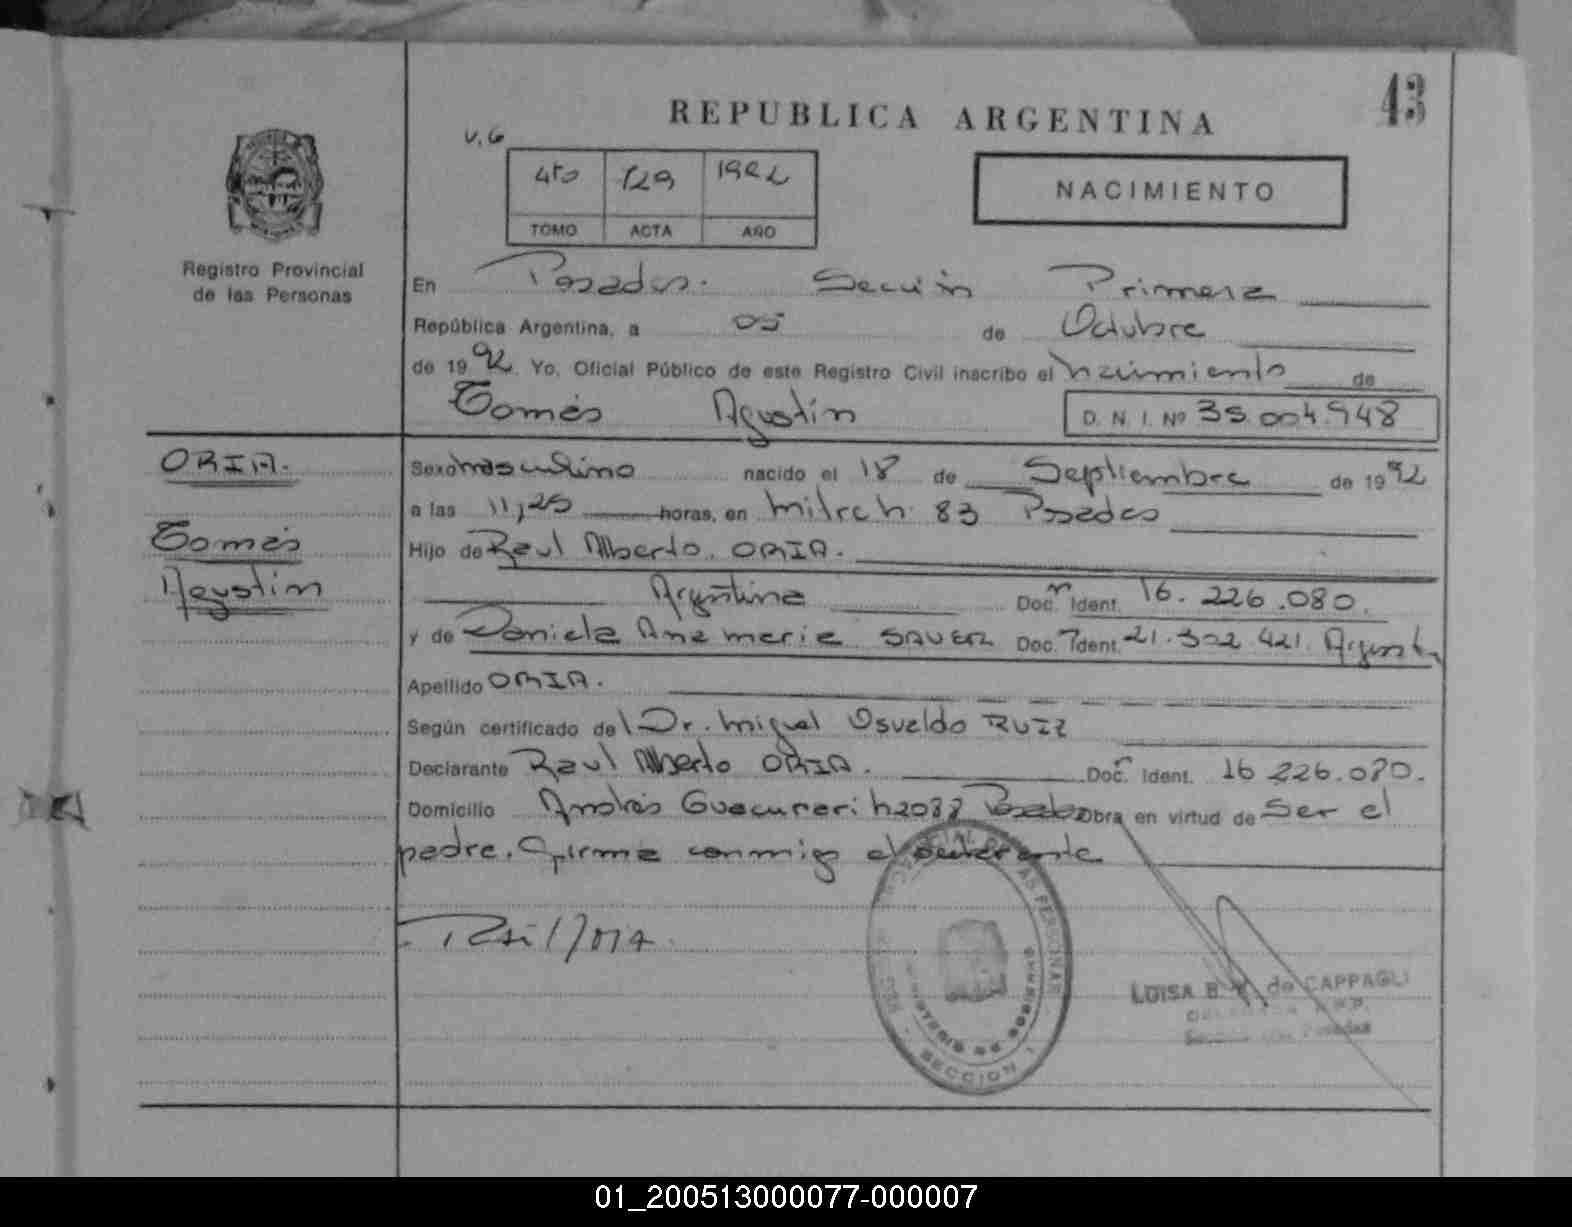 43
REPUBLICA ARGENTINA
V.G
4to 129 1992
TOMO ACTA AÑO
NACIMIENTO
Registro Provincial
de las Personas
En Posadas. Sección Primera
República Argentina, a 05 de Octubre
de 1992 Yo, Oficial Público de este Registro Civil inscribo el nacimiento de
Tomás Agustín D. N. I. Nº 35.004.948
ORIA.
Tomás
Agustín
Sexo masculino nacido el 18 de Septiembre de 1992
a las 11,25 horas, en Mitre h. 83 Posadas
Hijo de Raul Alberto. ORIA.
Argentina Doc. Ident. 16.226.080.
y de Daniela Ana Maria SAUER Doc. Ident. 21.302.421.
Apellido ORIA.
Según certificado del Dr. Miguel Osvaldo RUIZ
Declarante Raul Alberto ORIA. Doc. Ident. 16 226.080.
Domicilio Andrés Guacurari Posadas Obra en virtud de Ser el
padre. Firma conmigo el
LUISA B. de CAPPAGLI
Posadas
PERSONAS
MINISTERIO DE GOBIERNO
SECCION 1
01_200513000077-000007